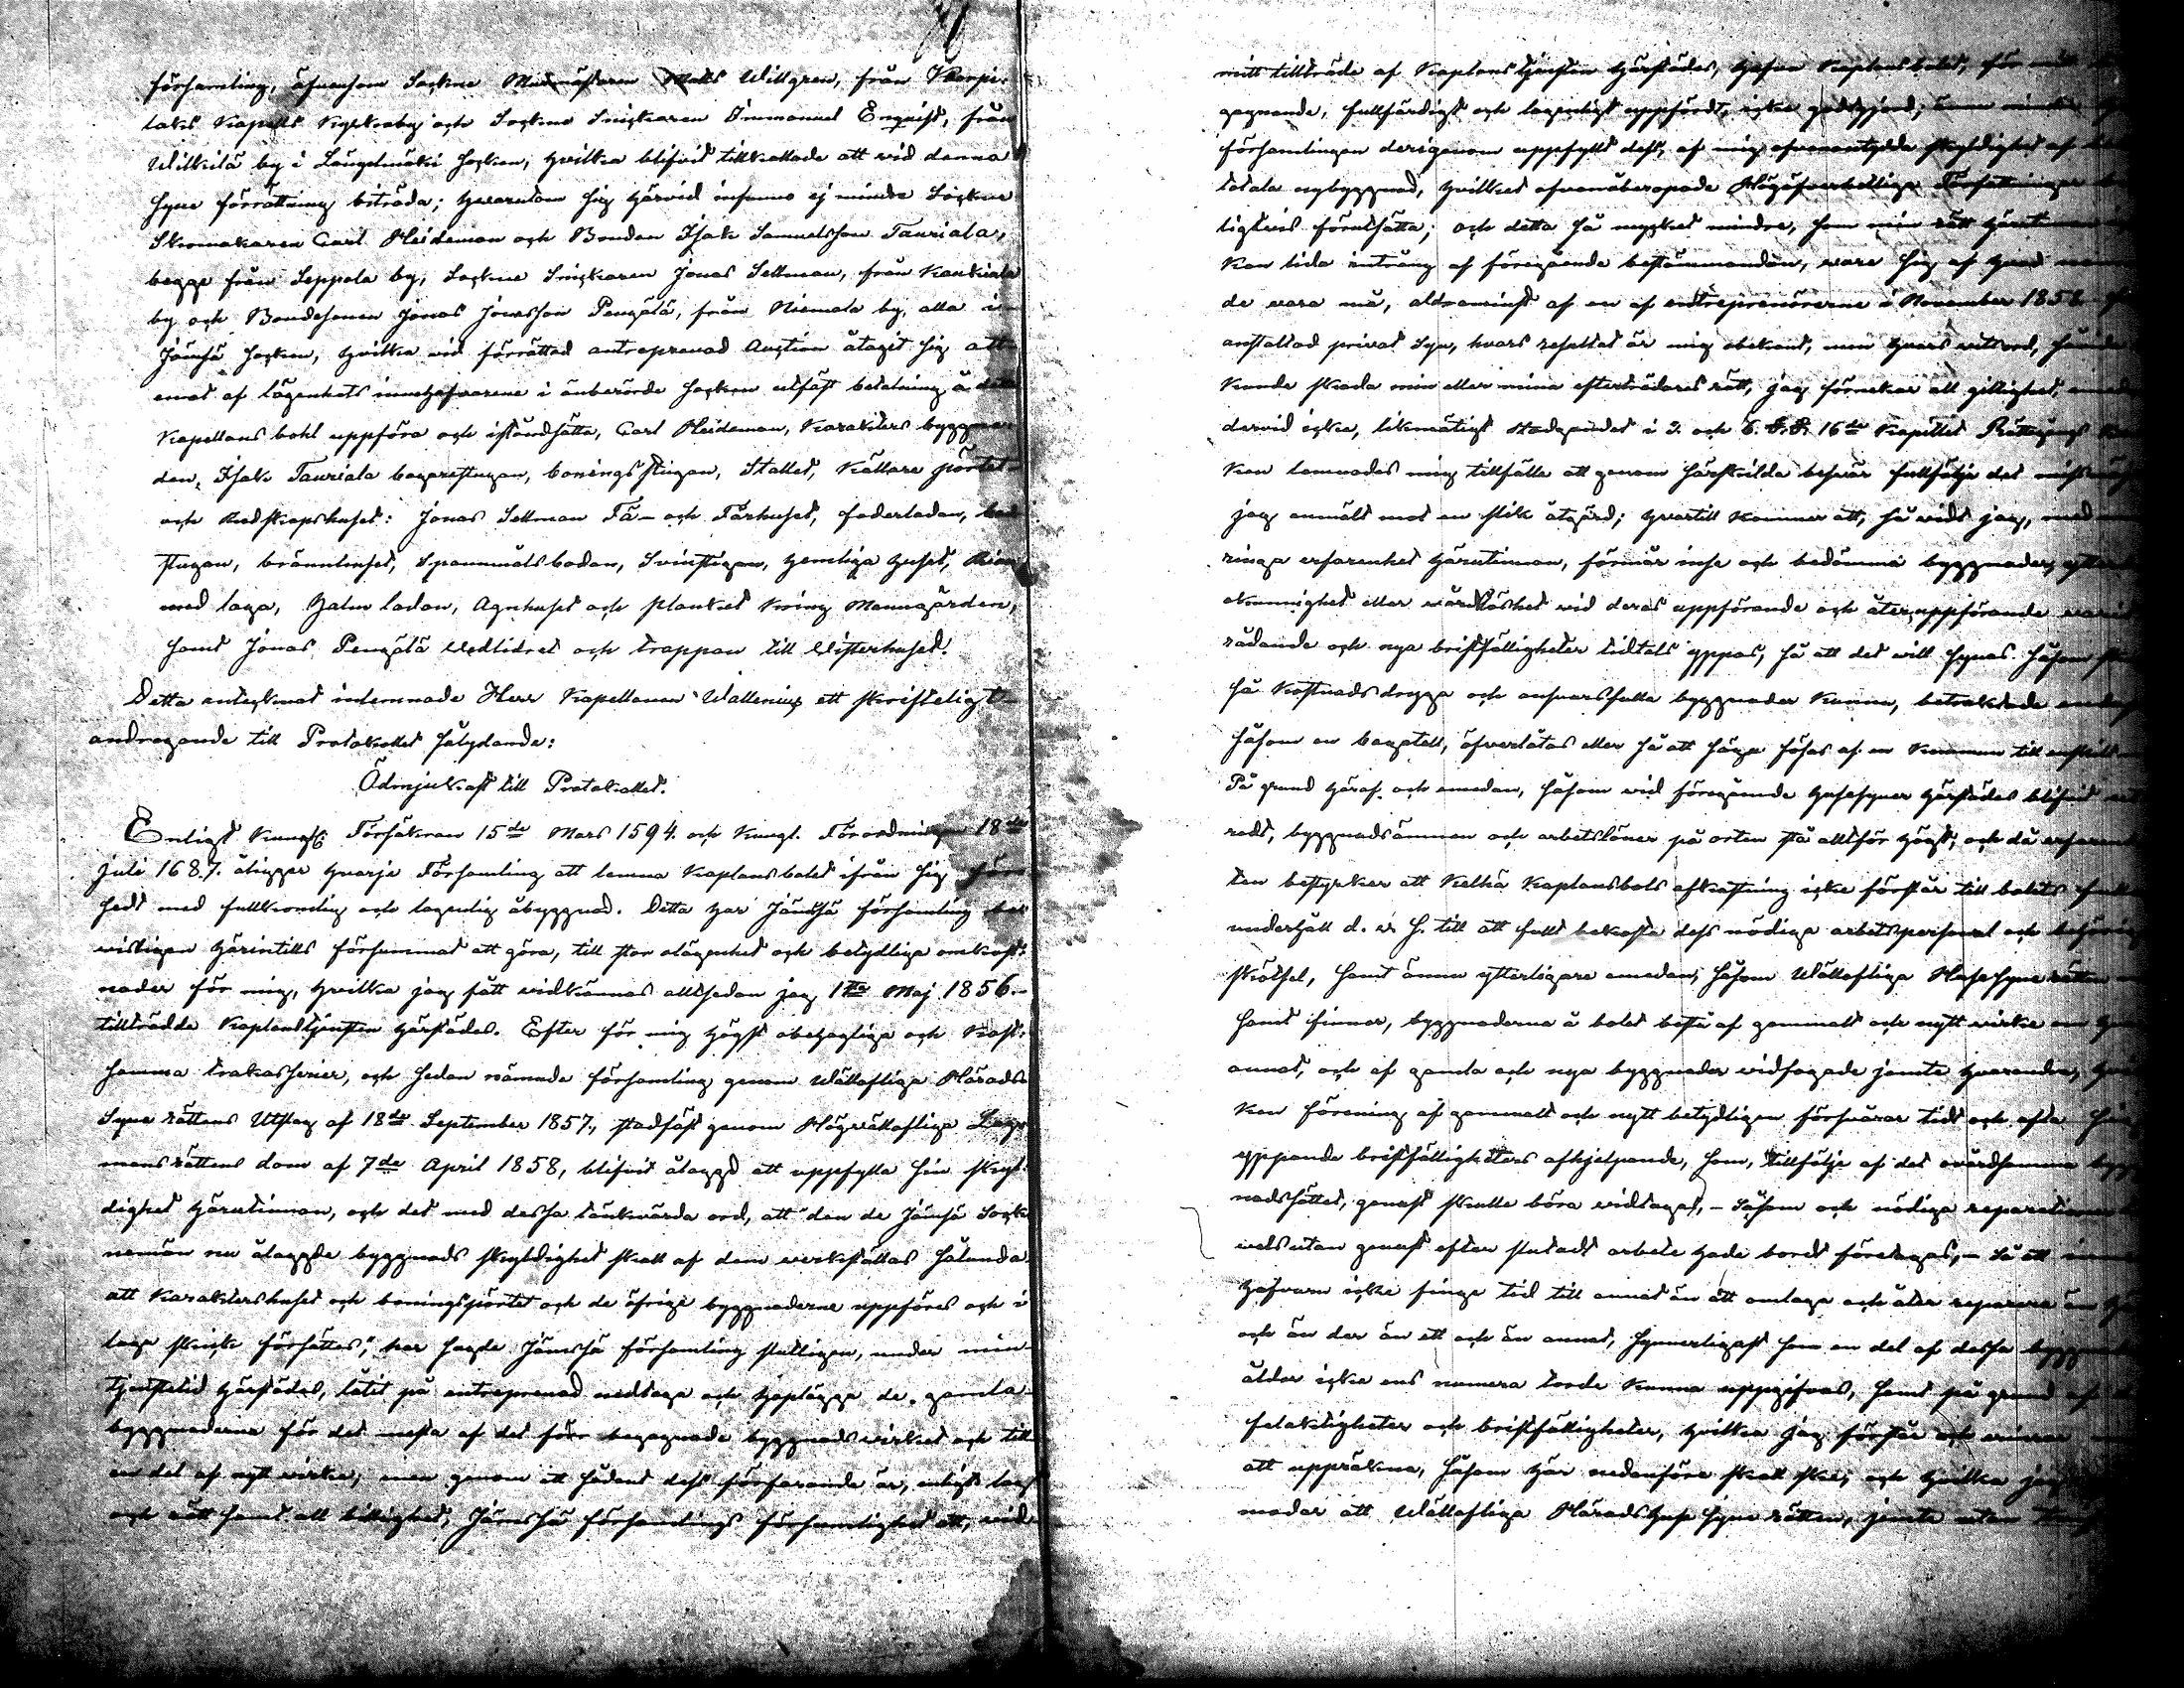 församling, äfvensom Sockne Murmästaren Matts Willgren, från Korpi-
laks Kapells Kyrkoby och Sockne Snickaren Immanuel Enqvist, från
Wilkilä by i Längelmäki Socken, hvilka blifvit tillkallade att vid denna
Syne förrättning biträda; hvarutom sig härvid infunno ej mindre Sockne
Skomakaren Carl Heideman och Bonden Isak Samuelsson Tauriala,
begge från Seppola by, Sockne Snickaren Jonas Sellman, från Kankiala
by och Bondesonen Jonas Jonasson Pengälä, från Niemola by, alla i
Jämsä Socken, hvilka vid förrättad entreprenad Auction åtagit sig att
emot af lägenhets innehafvarene i änberörde Socken utfäst betalning å detta
Kapellans bohl uppföra och iståndsätta, Carl Heideman, Karakters byggna-
den, Isak Tauriala bagarestugan, boningsstugan, Stallet, Källare pörtet
och Redskapshuset: Jonas Sellman Fä- och Fårhuset, foderladan, bad
stugan, brännhuset, Spannmålsboden, Svinstigan, hemliga huset, Rian
med loga, halm ladan, Agnhuset och planket kring Manngården,
samt Jonas Pengälä Vedlidret och trappan till Visterhuset.
Detta antecknat inlemnade Herr Kapellanen Wallenius ett skrifteligt
andragande till Protokollet sålydande:
Ödmjukast till Protokollet.
Enligt Kungl. Försäkran 15de Mars 1594 och Kungl. Förordningen 18de
Juli 1687 åligger hvarje Församling att lemna Kaplansbolet ifrån sig för-
sedt med fullkomlig och lagenlig åbyggnad. Detta har Jämsä församling
visligen härintills försummat att göra, till stor olägenhet och betydliga omkost-
nader för mig, hvilka jag fått vidkännas alltsedan jag 1sta Maj 1856
tillträdde Kaplanstjensten härstädes. Efter för mig högst obehagliga och kost-
samma trakasserier, och sedan nämnde församling genom Wällofliga Härads
Syne rättens Utslag af 18de September 1857, stadfäst genom Högvällofliga Lag-
mansrättens dom af 7de April 1858, blifvit ålaggd att uppfylla sin skyl-
dighet härutinnan, och det med dessa tänkvärda ord, att "den de Jämsä Sock-
nemän nu ålaggde byggnads skyldighet skall af dem verkställas sålunda
att Karaktershuset och boningspörtet och de öfrige byggnaderne uppföres och i
laga skick försättes," har sagde Jämsä församling slutligen, under min
tjenstetid härstädes, låtit på entreprenad nedtaga och hoplägga de gamla
byggnaderna för det mesta af det förr begagnade byggnadsvirket och till
en del af nytt virke; men genom ett sådant dess förfarande är, enligt lag
och rätt samt all billighet, Jämsä församlings församlighet att, vid
mitt tillträde af Kaplanstjensten härstädes, hafva Kaplansbolet, för mitt
gagnande, fullfärdigt och lagenligt uppfördt, icke godtgjord; ännu mindre
församlingen derigenom uppfyllt dess, af mig ofvanantydda skyldighet af
totala nybyggnad, hvilket ofvanåberopade Högöfverhetliga Författningar
ligtvis förutsätta; och detta så mycket mindre, som min rätt härutinnan
kan lida intrång af föregående bestämmanden, vare sig af hvad
de vara må, aldraminst af en af entreprenörerne i November 1858
anstalltad privat Syn, hvars resultat är mig obekant, men hvars vittsord,
kunde skada min eller mina efterträdares rätt, jag förnekar all giltighet,
dervid icke, likmätigt stadgandet i 3. och 6. §.§. 16de Kapitlet Rättegångs
kan lemnades mig tillfälle att genom särskilda besvär fullfölja det missnöje
jag anmält mot en slik åtgärd; hvartill kommer att, så vidt jag, med
ringa erfarenhet härutinnan, förmår inse och bedömma byggnader,
okunnighet eller vårdslöshet vid deras uppförande och återuppförande
rådande och nya bristfälligheter tidtals yppas, så att det vill synas såsom
så kostnadsdryga och ansvarsfulla byggnader kunna, betraktade
såsom en bagatell, öfverlåtas eller så att säga
På grund häraf och emedan, såsom vid föregående husesyner härstädes blifvit
redt, byggnadsämnen och arbetslöner på orten stå alltför högt; och då
ten bestyrker att Kelhä Kaplansbols afkastning icke förslår till bolets
underhåll d. v. s. till att fullt bekosta dess nödiga arbetspersonal och
skötsel, samt ännu ytterligare emedan, såsom Wällofliga Husesyne rätten
samt finner, byggnaderna å bolet bestå af gammalt och nytt virke om
annat, och af gamla och nya byggnader vidfogade jemte hvarandra,
kan förening af gammalt och nytt betydligen försvårar tidt och ofta
yppande bristfälligheters afhjelpande, som, tillfölje af det ovärdsamma bygg-
nadssättet, genast skulle böra vidtagas, – såsom och nödiga reparationer
velsutan genast efter slutadt arbete hade bordt företagas, – så att
hafvaren icke finge tid till annat än att omlaga och åter reparera än
och än der än ett och än annat, synnerligast som en del af dessa
ålder icke ens numera torde kunna uppgifvas, samt på grund af
felaktigheter och bristfälligheter, hvilka jag förstår och
att uppräkna, såsom här nedanföre skall ske, och hvilka jag
modar att Wällofliga Härads huse syne rätten, jemte